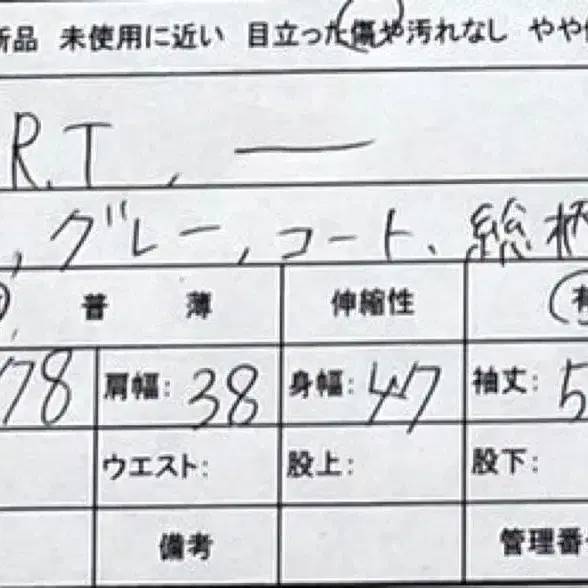 新品 未使用に近い 目立った傷や汚れなし やや
R.T, ー
, グレー, コート、総柄
普 薄 伸縮性 有
78 肩幅: 38 身幅: 47 袖丈: 5
ウエスト: 股上: 股下:
備考 管理番